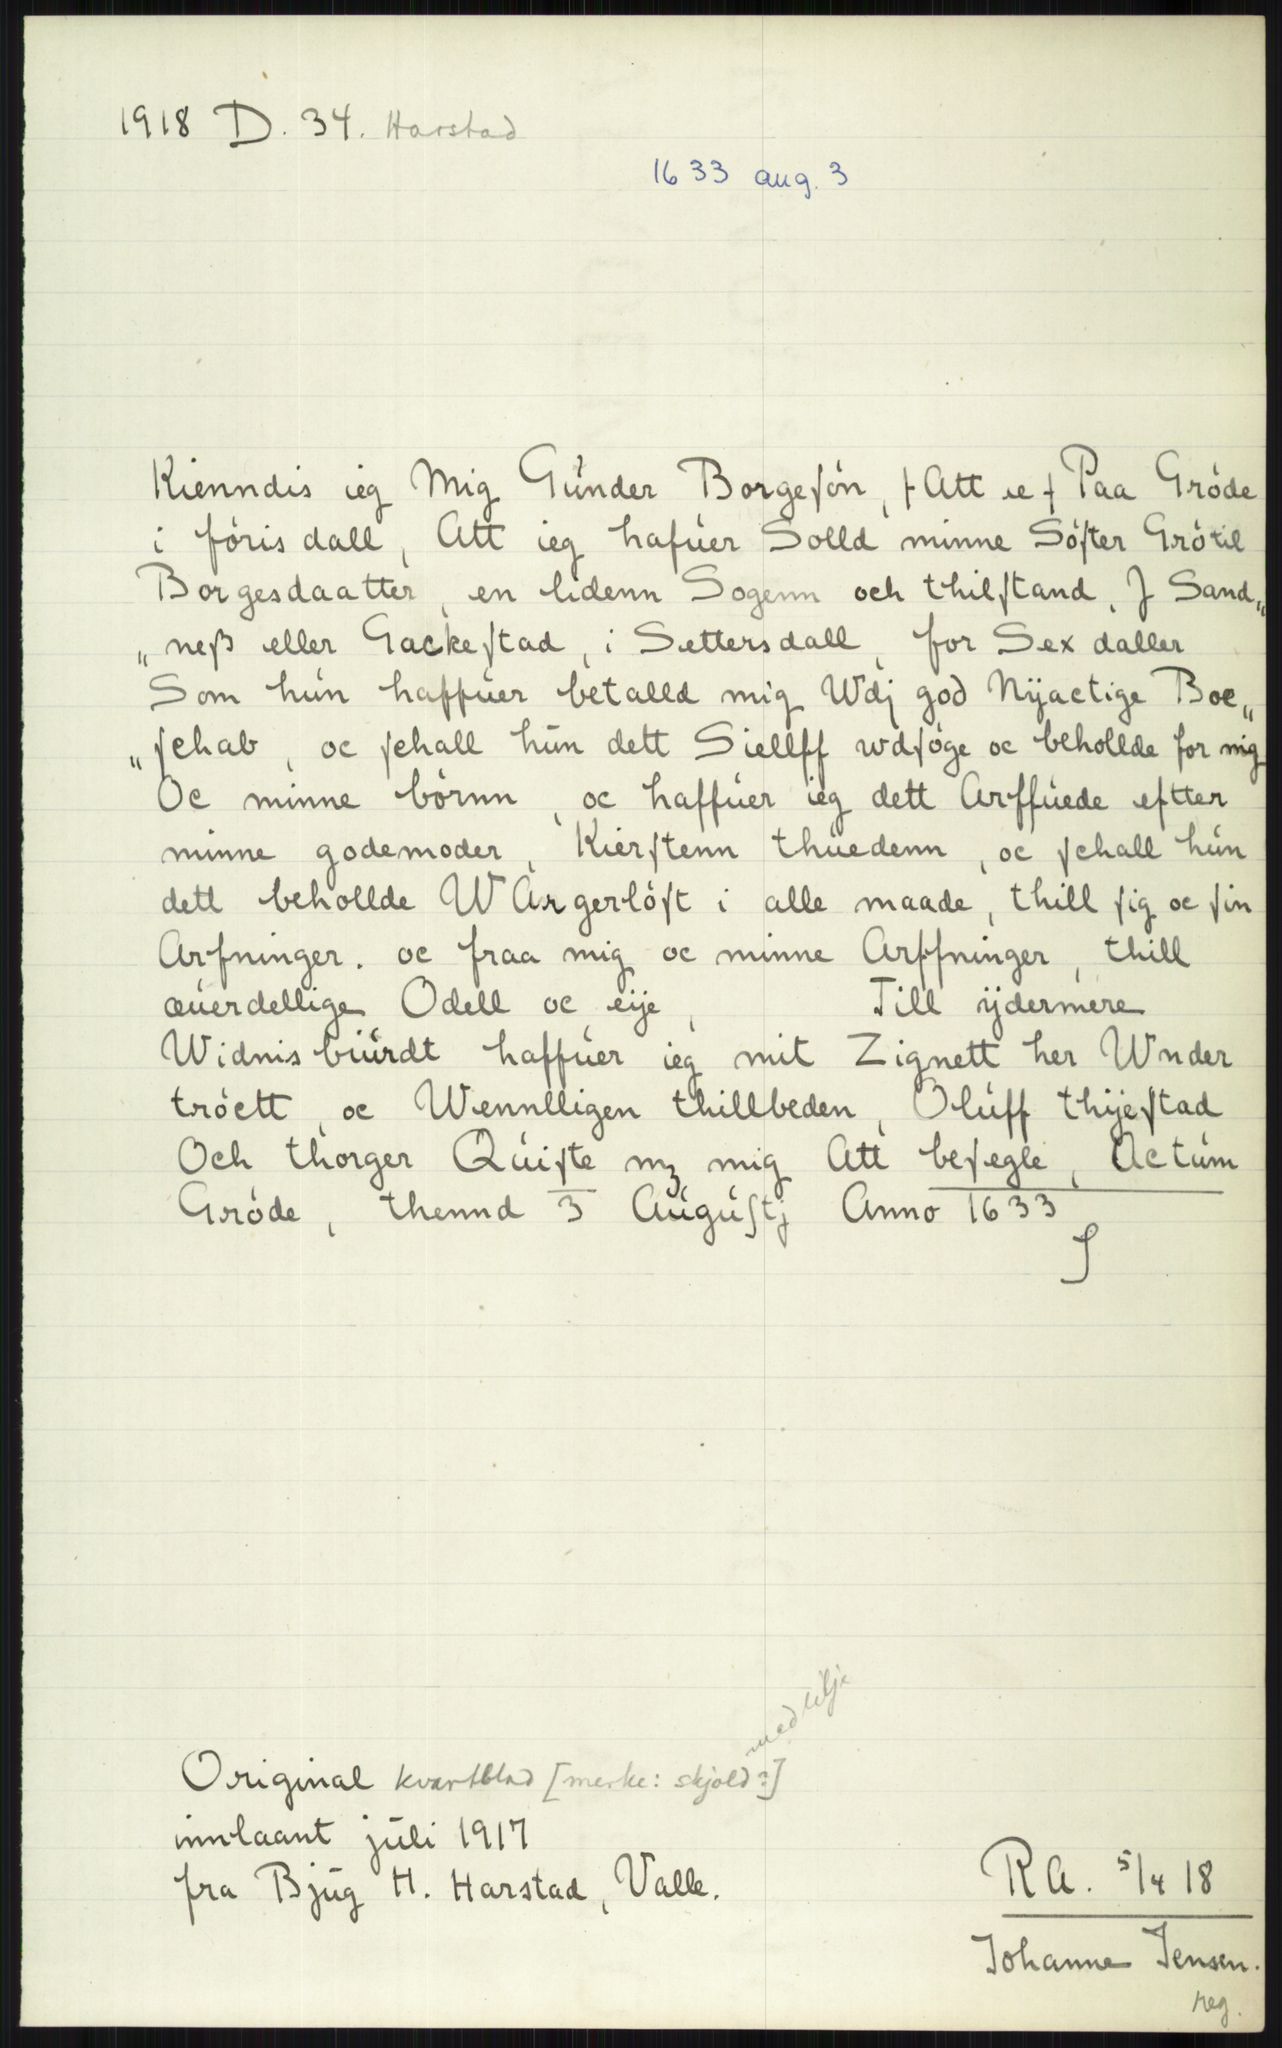 1918 D. 34. Harstad
1633 aug. 3
Kienndis ieg Mig Gúnder Borgeſón, ƚ Att ie ƚ Paa Gróde
i fóris dall, Att ieg hafúer Solld minne Sóſter Grótil
Borgesdaatter, en lidenn Sogenn och thilſtand, J Sand„
„neß eller Gackeſtad, i Settersdall, for Sex daller
Som hún haffúer betalld mig Wdj god Nÿactige Boe„
„ſchab, oc ſchall hún dett Siellff wdſóge oc behollde for mig
Oc minne bórnn, oc haffúer ieg dett Arffúede eftter
minne godemoder, Kierſtenn thúedenn, oc ſchall hún
dett behollde WArgerlóſt i alle maade, thill ſig oc ſin
Arfninger. oc fraa mig oc minne Arffninger, thill
æúerdellige Odell oc eije, Till ÿdermere
Widnisbiúrdt haffúer ieg mit Zignett her Wnder
tróctt, oc Wennlligen thillbeden, Olúff thijeſtad
Och thorger Qúiſte mꝫ mig Att beſegle, Actúm
Gróde, thennd 3 Aúgúſtj Anno 1633
med lilje
Original kvartblad [merke: skjold?]
innlaant júli 1917
fra Bjúg H. Harstad, Valle.
RA. 5/4 18
Johanne Jensen.
reg.